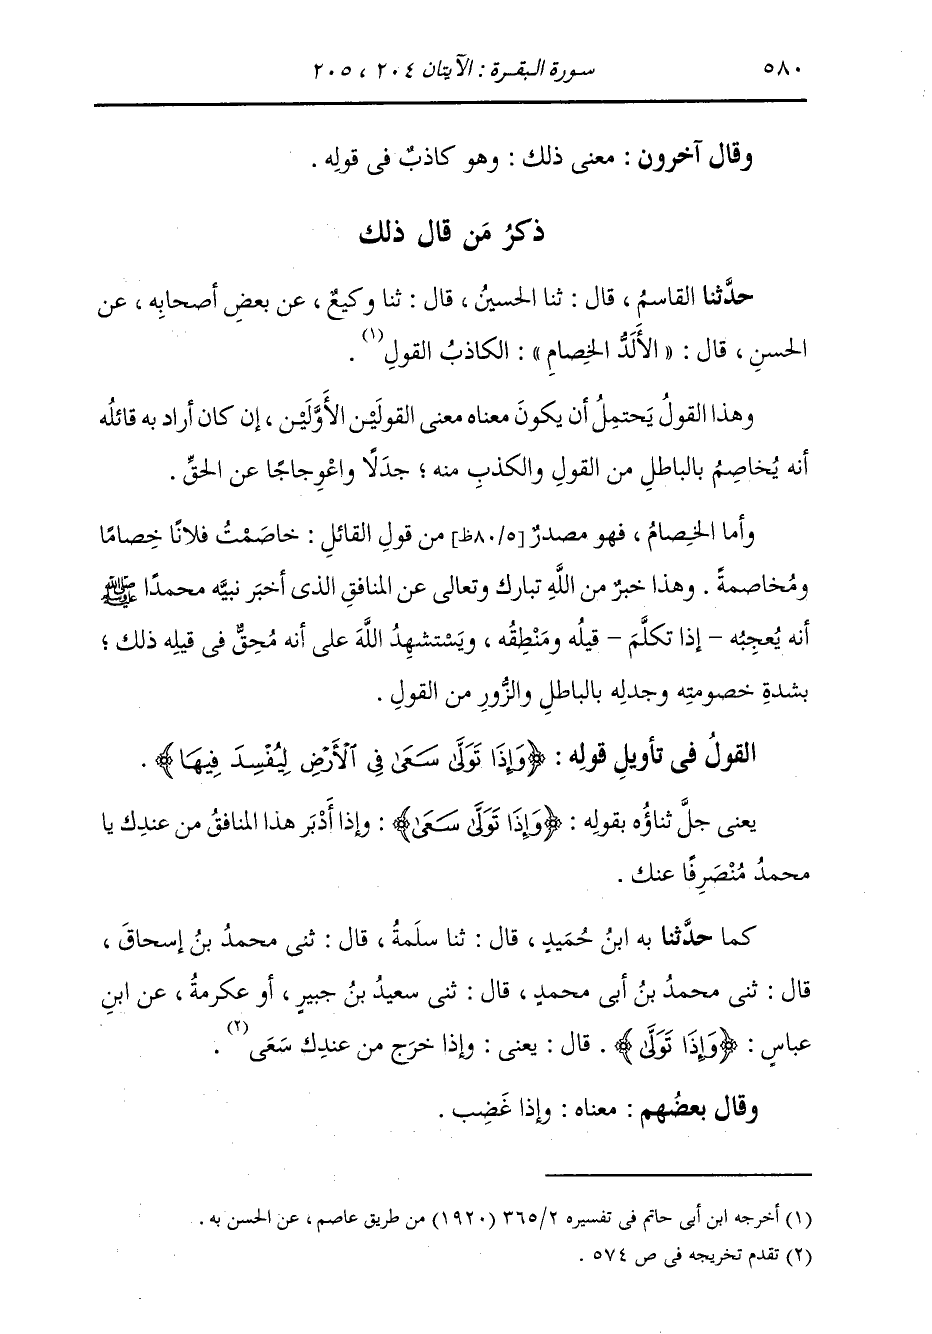 ٥٨٠ سورة البقرة : الآيتان ٢٠٤ ، ٢٠٥
وقال آخرون : معنى ذلك : وهو كاذبٌ فى قولِه .
ذكرُ مَن قال ذلك
حدَّثنا القاسمُ ، قال : ثنا الحسينُ ، قال : ثنا وكيعٌ ، عن بعضِ أصحابِه ، عن
الحسنِ ، قال : « الأَلَدُّ الخِصامِ » : الكاذبُ القولِ(١) .
وهذا القولُ يَحتمِلُ أن يكونَ معناه معنى القولَيْن الأَوَّلَيْن ، إن كان أراد به قائلُه
أنه يُخاصِمُ بالباطلِ من القولِ والكذبِ منه ؛ جدَلًا واعْوِجاجًا عن الحقِّ .
وأما الخِصامُ ، فهو مصدرٌ [٨٠/٥ظ] من قولِ القائلِ : خاصَمْتُ فلانًا خِصامًا
ومُخاصمةً . وهذا خبرٌ من اللَّهِ تبارك وتعالى عن المنافقِ الذى أخبَر نبيَّه محمدًا ﷺ
أنه يُعجِبُه - إذا تكلَّمَ - قيلُه ومَنْطِقُه ، ويَسْتشهِدُ اللَّهَ على أنه مُحِقٌّ فى قيلِه ذلك ؛
بشدةِ خصومتِه وجدلِه بالباطلِ والزُّورِ من القولِ .
القولُ فى تأويلِ قولِه : ﴿وَإِذَا تَوَلَّىٰ سَعَىٰ فِى ٱلْأَرْضِ لِيُفْسِدَ فِيهَا﴾ .
يعنى جلَّ ثناؤُه بقولِه : ﴿وَإِذَا تَوَلَّىٰ سَعَىٰ﴾ : وإذا أَدْبَر هذا المنافقُ من عندِك يا
محمدُ مُنْصَرِفًا عنك .
كما حدَّثنا به ابنُ حُمَيدٍ ، قال : ثنا سلَمةُ ، قال : ثنى محمدُ بنُ إسحاقَ ،
قال : ثنى محمدُ بنُ أبى محمدٍ ، قال : ثنى سعيدُ بنُ جبيرٍ ، أو عكرمةُ ، عن ابنِ
عباسٍ : ﴿وَإِذَا تَوَلَّىٰ﴾ . قال : يعنى : وإذا خرَج من عندِك سَعَى(٢) .
وقال بعضُهم : معناه : وإذا غَضِب .
(١) أخرجه ابن أبى حاتم فى تفسيره ٣٦٥/٢ (١٩٢٠) من طريق عاصم ، عن الحسن به .
(٢) تقدم تخريجه فى ص ٥٧٤ .